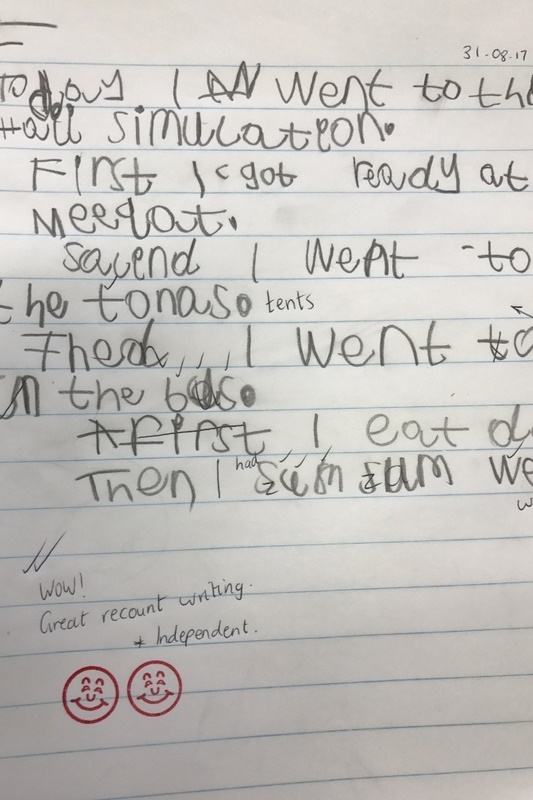 31-08-17
Today I went to the
Hall simulation.
First I got ready at
Meeqat.
Sacend I went to
the tonaso tents
Thed I went to
in the bus.
First I eat
Then I had sum
Wow!
Great recount writing.
* Independent.